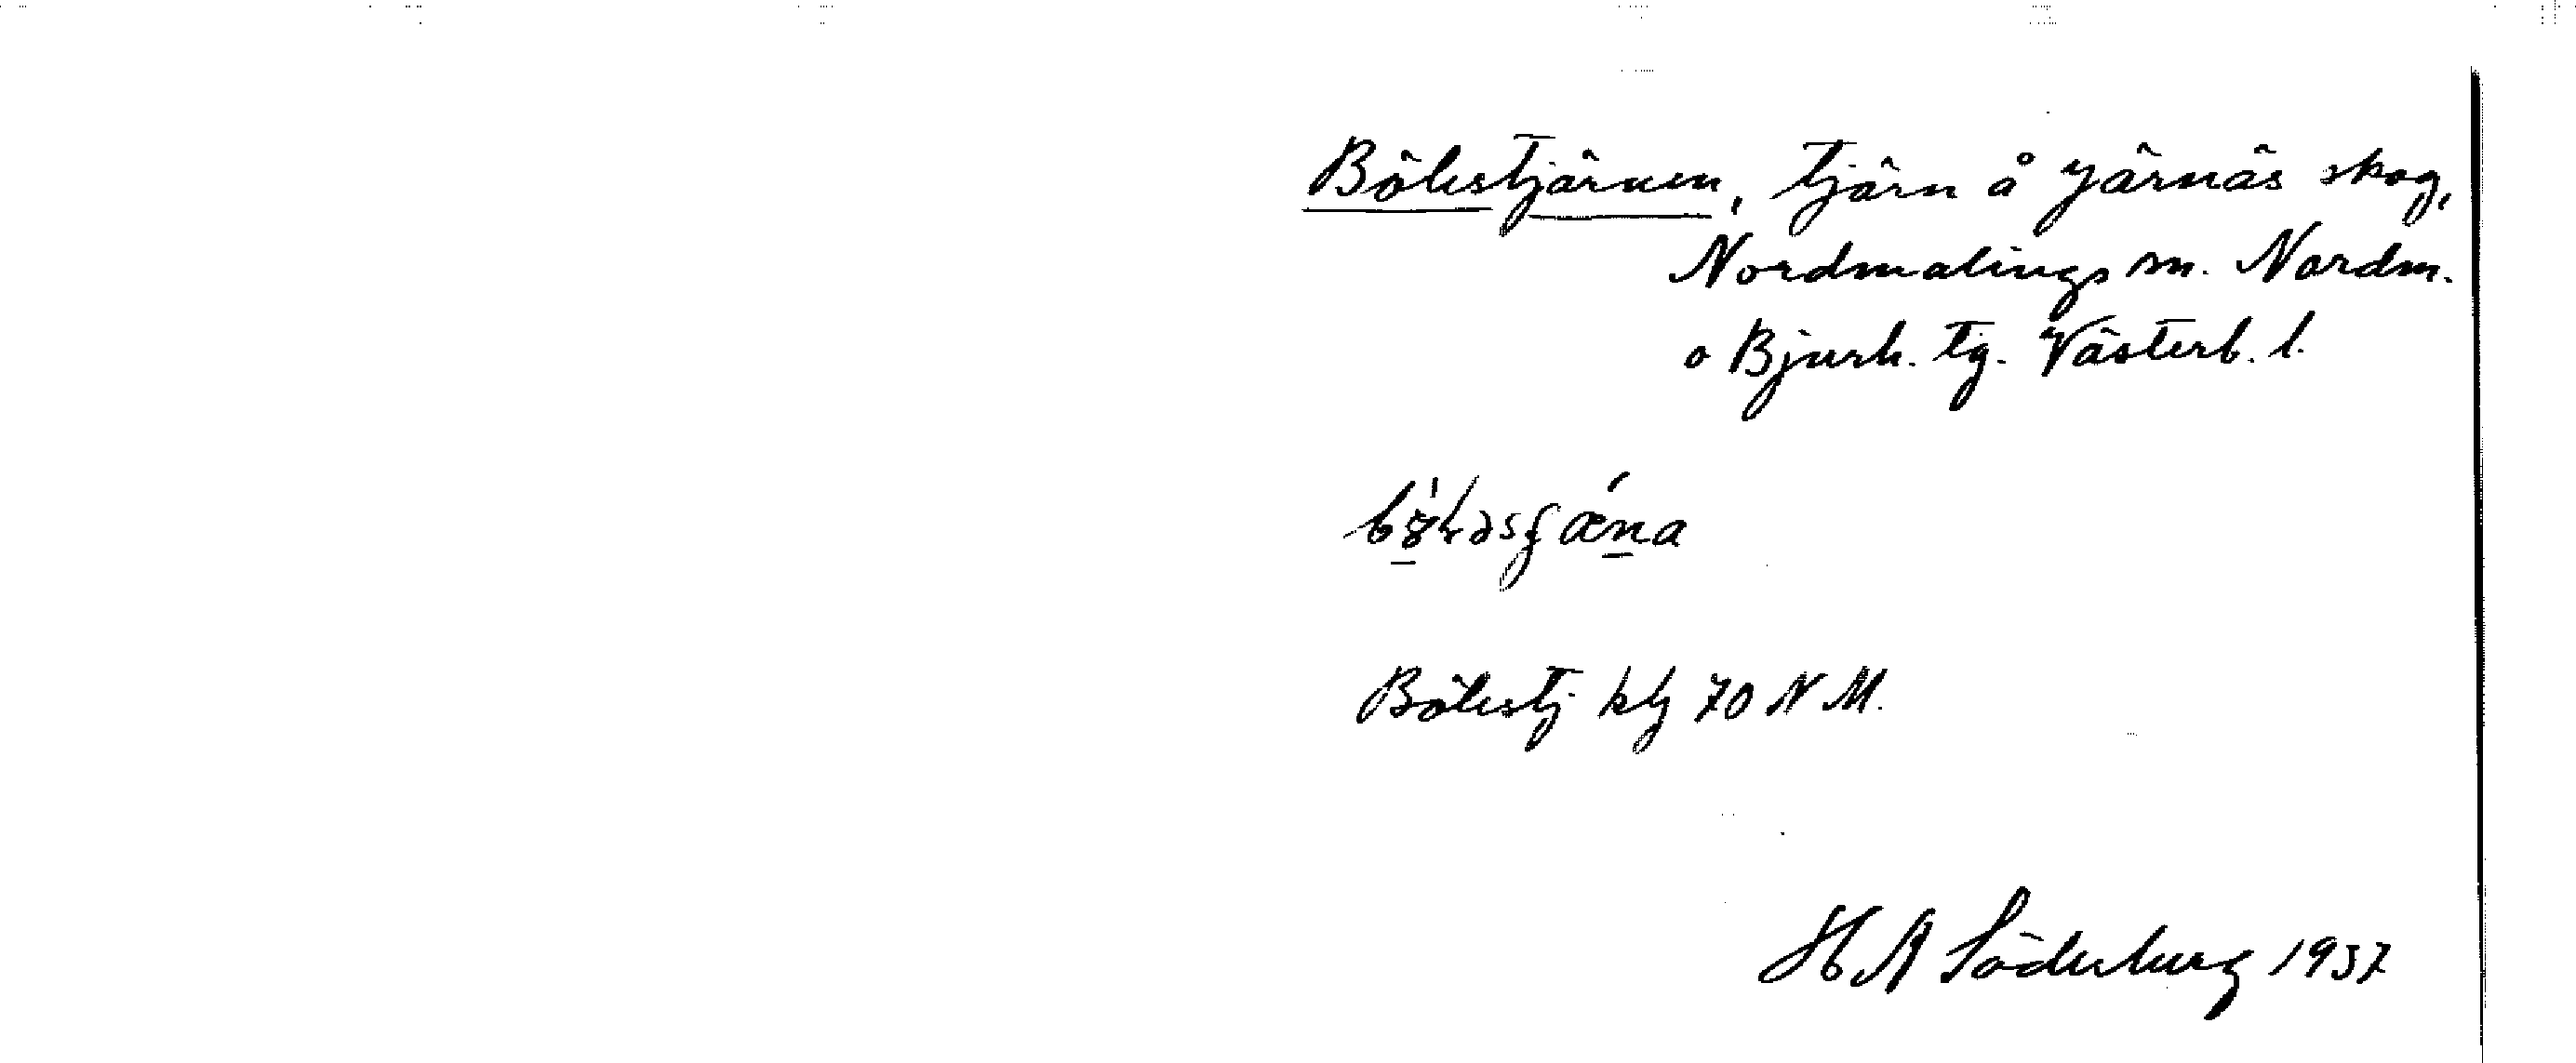 Bölestjärnen, tjärn å Järnäs skog,
Nordmalings sn. Nordm.
o Bjurh. tg. Västerb. l.
Bölestj
70 N M.
H A Söderberg 1937